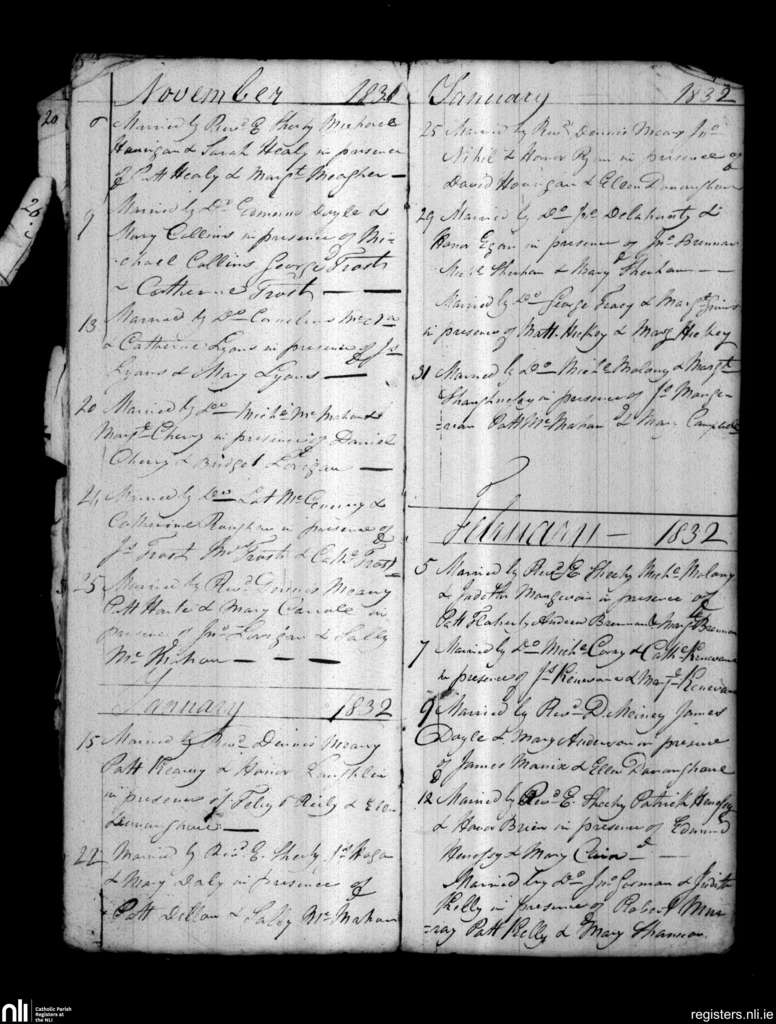 20
26
November 1831
6 Married by Revd. E Sheehy Michael
Hanigan & Sarah Healy in presence
of P. Healy & Margt. Meagher —
9 Married by Do. Edmund Doyle &
Mary Collins in presence of Mi-
chael Collins George Frost
& Catherine Frost — —
13 Married by Do. Cornelius
& Catherine Lyons in presence of Js.
Lyons & Mary Lyons —
20 Married by Do. Michl. McMahon &
Margt. Cherry in presence of Daniel
Cherry & Bridget Lorigan —
21 Married by Do. Lot &
Catherine in presence of
Js. Frost Frost & Cathe. Frost
25 Married by Revd. Dennis Meany
Patt Harte & Mary Carroll in
presence of Jno. Lorigan & Sally
Mc — — — —
January 1832
15 Married by Revd. Dennis Meany
Patt Kearny & Honor
in presence of Reily &
Donnoghue —
22 Married by Revd. E. Sheehy Js. Hogan
& Mary Daly in presence of
Patt Dillon & Sally McMahon
January 1832
25 Married by Revd. Dennis Meany Jno.
Nihil & Honor Ryan in presence of
David Hanigan & Ellen Donnoghue
29 Married by Do. Js. Delahunty &
Honor Egan in presence of Jno. Brennan
Michl. Sheehan & Mary Sheehan — —
Married by Do. George Tracy & Margt.
in presence of Matt. Hickey & Mary Hickey
31 Married by Do. Michl. Molony & Margt.
Shaughnessy in presence of Js. Mange-
=van Patt McMahon & Mary Campbell
February — 1832
5 Married by Revd. E. Sheehy Michl. Molony
& Judith Mangevan in presence of
Patt Flaherty Andrew Brennan & Margt. Brennan
7 Married by Do. Michl. Corry & Cathe. Renevane
in presence of Js. Renevane & Margt. Renevan
9 Married by Revd. D. James
Doyle & Mary Anderson in presence
of James & Ellen Donnoghue
12 Married by Revd. E. Sheehy Patrick Henessy
& Honor Brien in presence of Edmund
Henessy & Mary —
Married by Do. Jno. Gorman & Judith
Kelly in presence of Robert Mur-
=ray Patt Kelly & Mary Shannon.
nli
Catholic Parish
Registers at
the NLI
registers.nli.ie